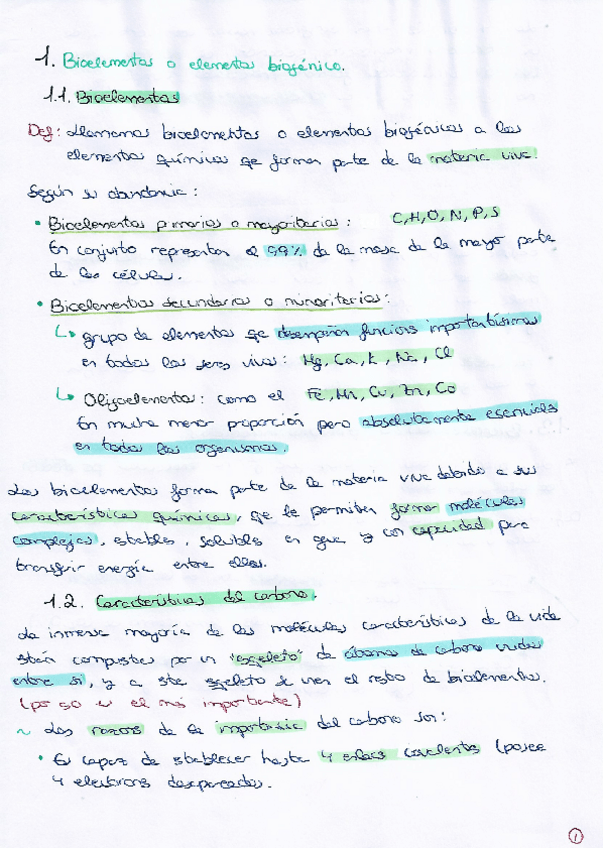 1. Bioelementos o elementos biogénico.
1.1. Bioelementos
Def: Llamamos bioelementos o elementos biogénicos a los
elementos químicos qe forman parte de la materia viva.
Según su abundancia:
• Bioelementos primarios o mayoritarios: C, H, O, N, P, S
En conjunto representan el 99% de la masa de la mayor parte
de las células.
• Bioelementos secundarios o minoritarios:
↳ grupo de elementos qe desempeñan funciones importantísimas
en todos los seres vivos: Mg, Ca, K, Na, Cl
↳ Oligoelementos: como el Fe, Mn, Cu, Zn, Co
En mucha menor proporción pero absolutamente esenciales
en todos los organismos.
Los bioelementos forma parte de la materia viva debido a sus
características químicas, qe le permiten formar moléculas
complejas, estables, solubles en agua y con capacidad para
transferir energía entre ellas.
1.2. Características del carbono.
La inmensa mayoría de las moléculas características de la vida
están compuestas por un "esqeleto" de átomos de carbono unidos
entre sí, y a este esqeleto se unen el resto de bioelementos.
(por eso es el más importante)
~ Las razones de la importancia del carbono son:
• Es capaz de establecer hasta 4 enlaces covalentes (posee
4 electrones desapareados.
1